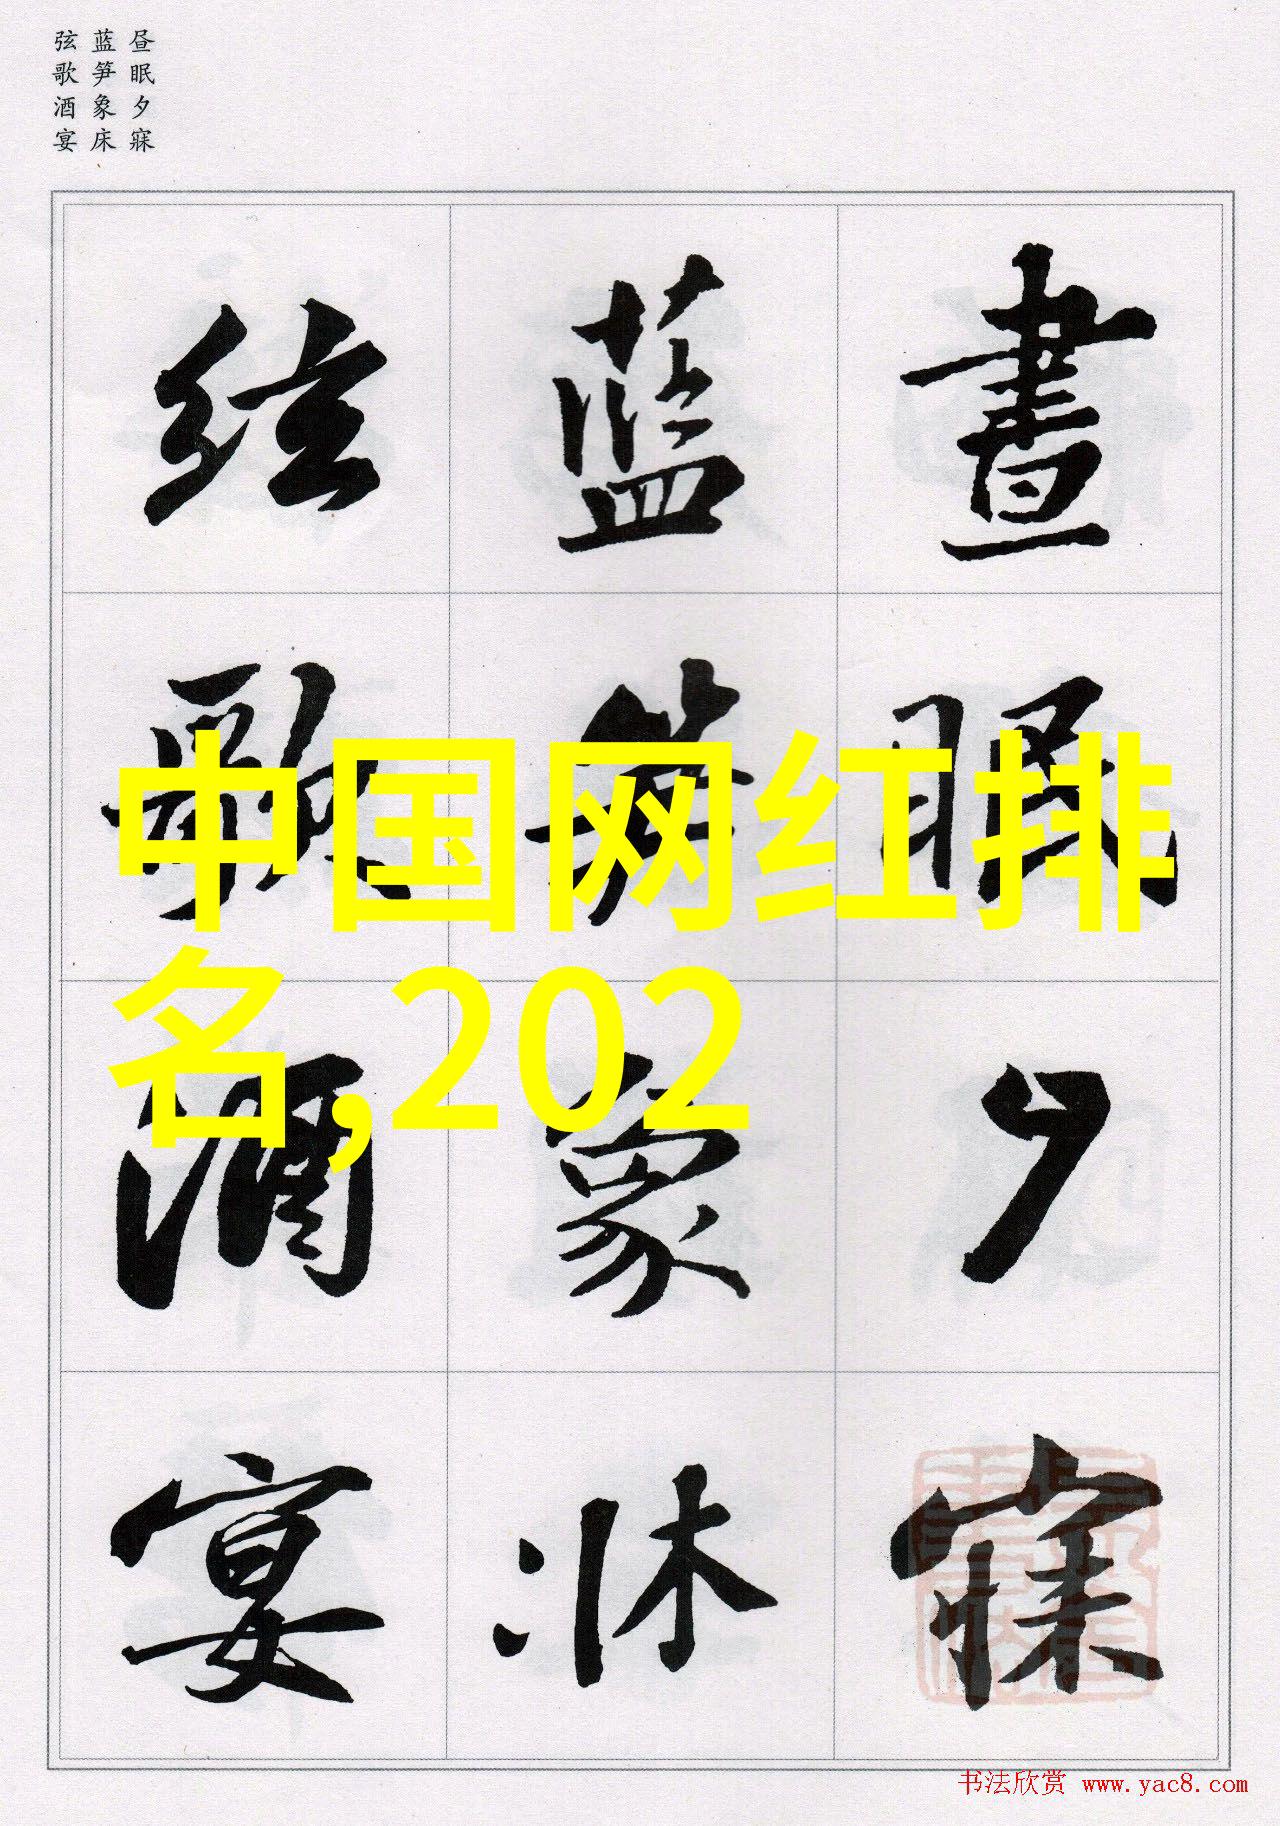 昼眠夕寐
蓝笋象床
弦歌酒宴
晝眠夕寐
蓝笋象床
弦歌酒宴
中国网红排
名,202
书法欣赏 www.yac8.com